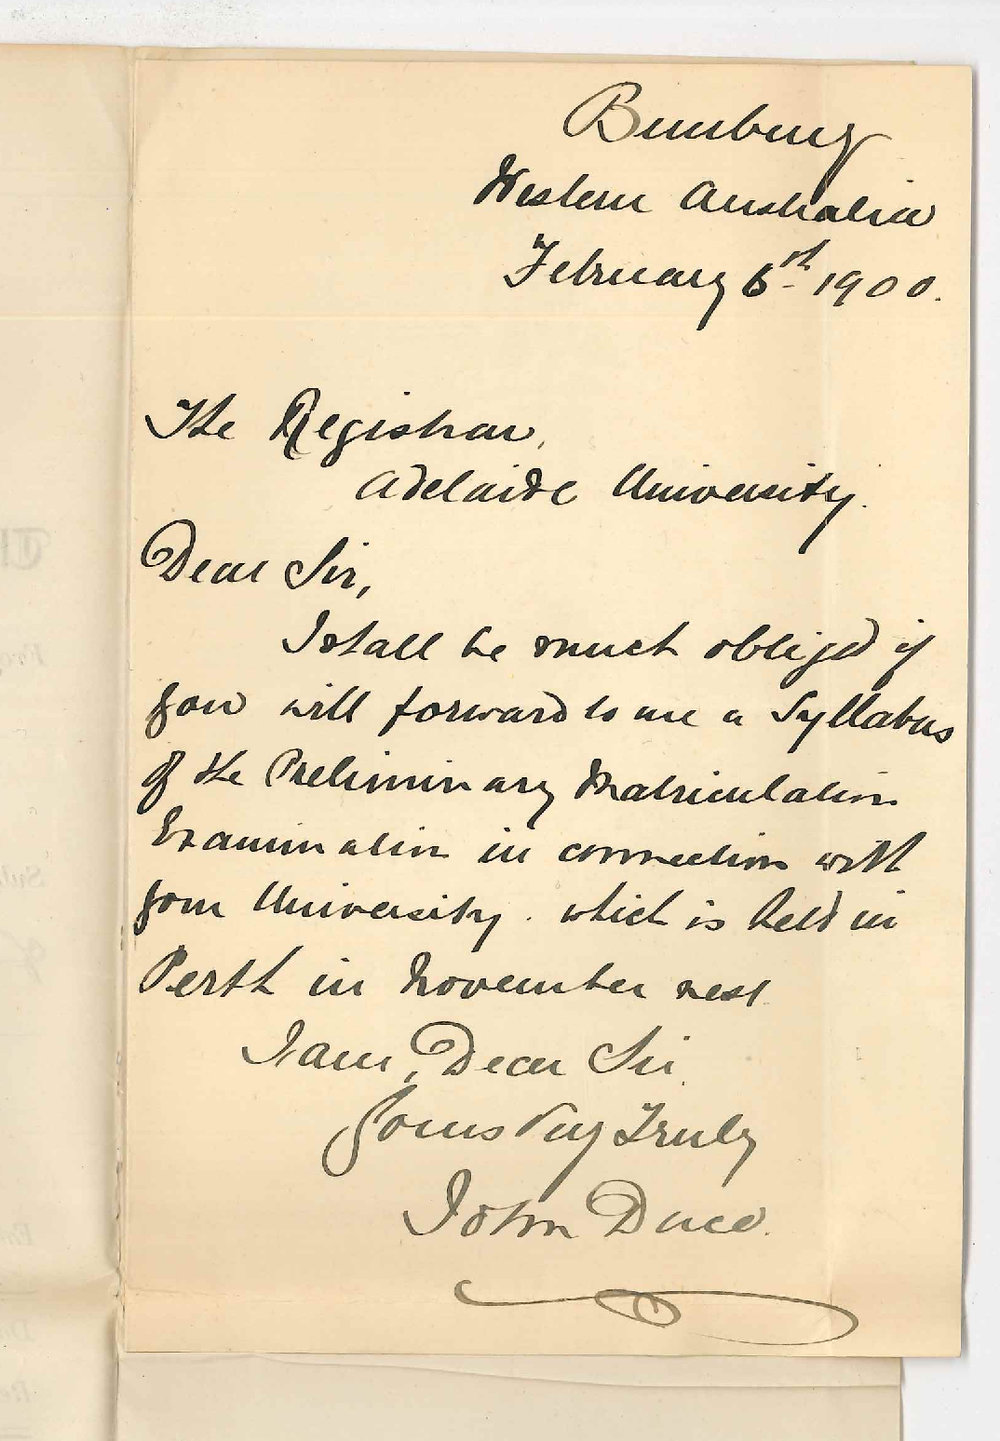 Bunbury
Western Australia
February 6th 1900.
The Registrar,
Adelaide University.
Dear Sir,
I shall be much obliged if
you will forward to me a Syllabus
of the Preliminary Matriculation
Examination in connection with
your University. which is held in
Perth in November next
I am, Dear Sir.
Yours Very Truly
John